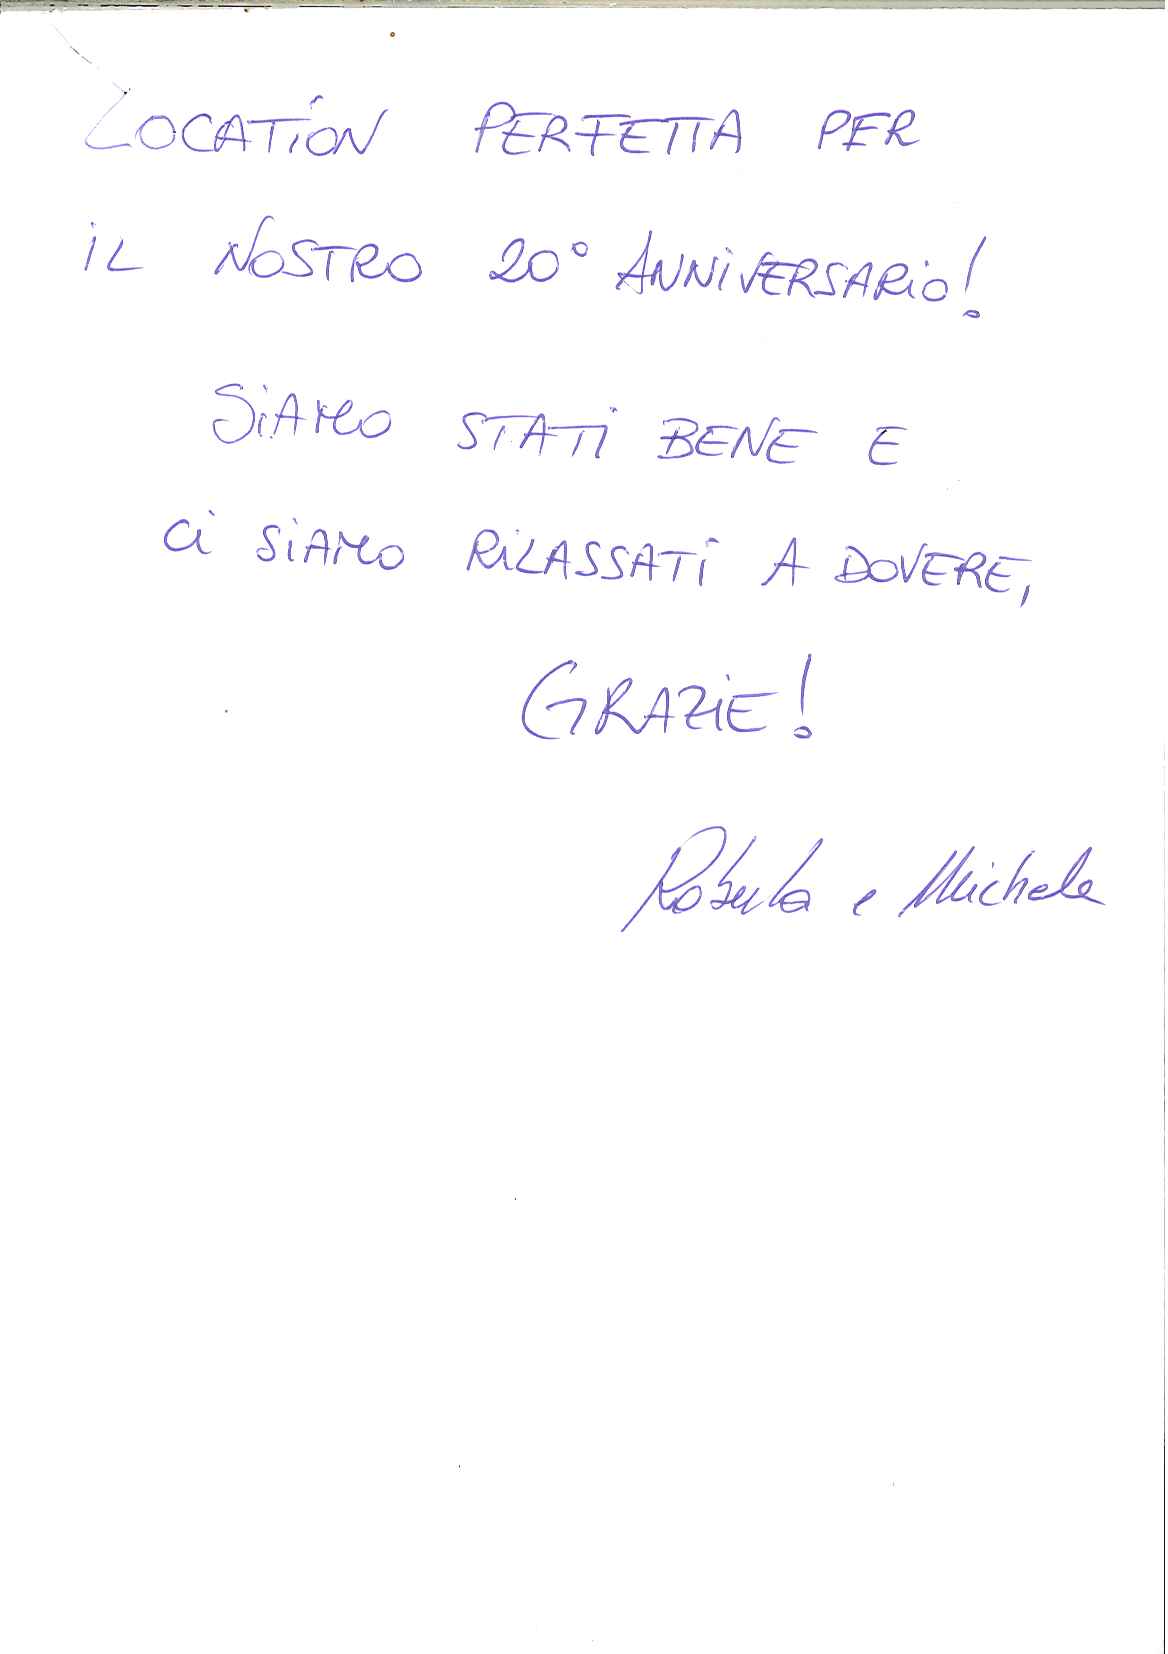 LOCATION PERFETTA PER
IL NOSTRO 20° ANNIVERSARIO!
SIAMO STATI BENE E
CI SIAMO RILASSATI A DOVERE,
GRAZIE!
Roberta e Michele